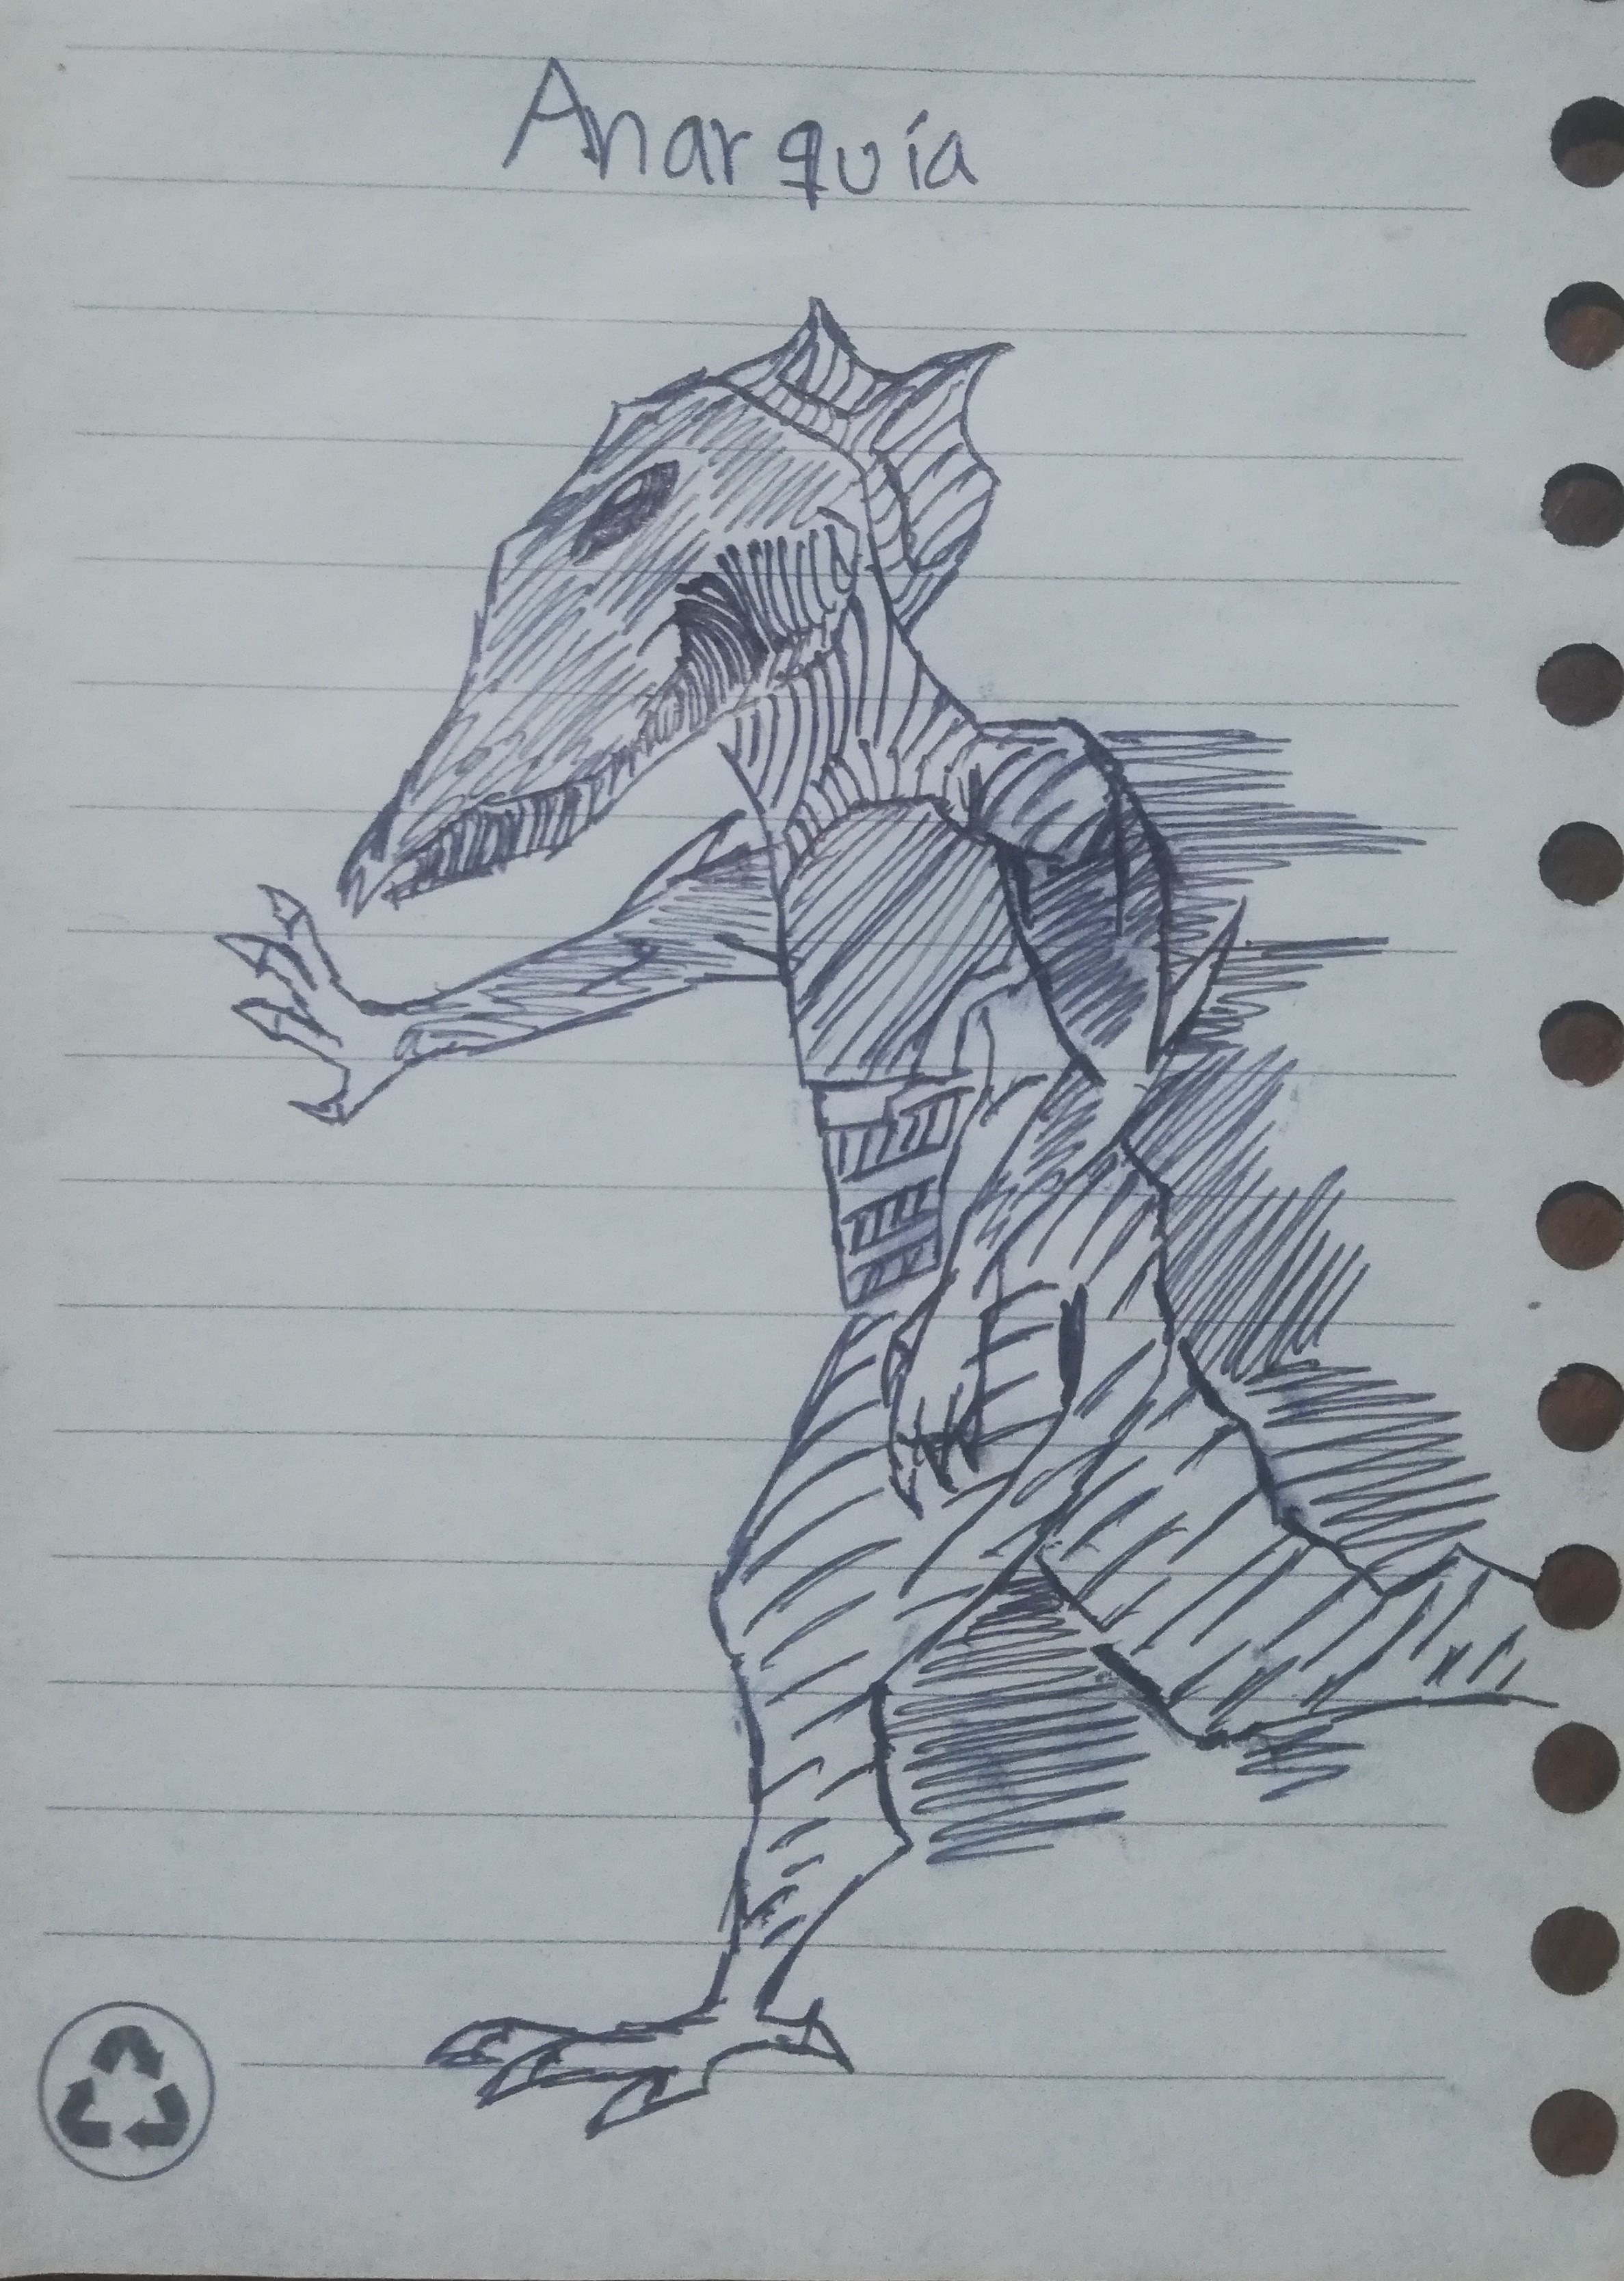 Anarquía